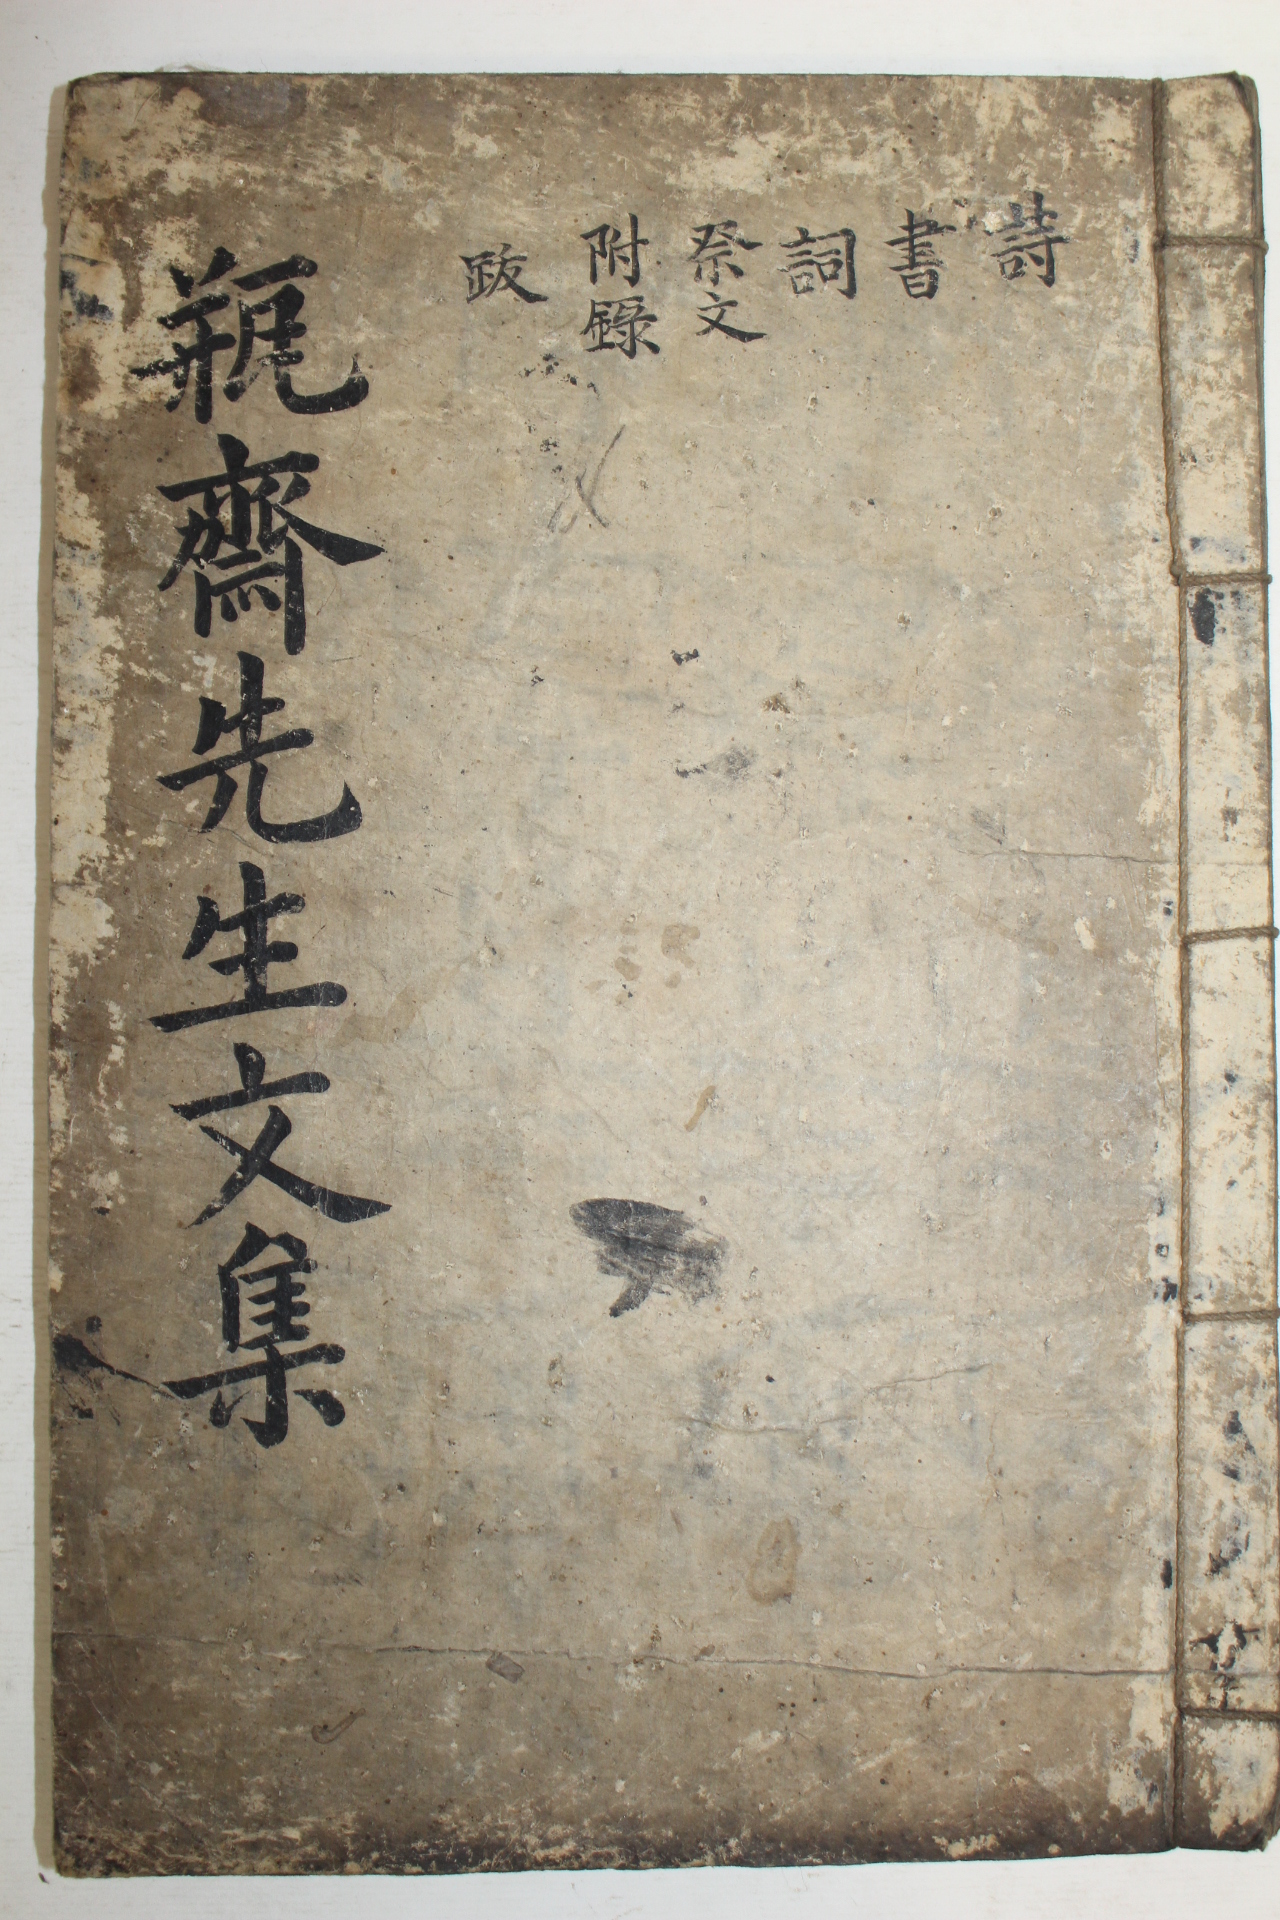 詩
書
詞
祭文
附錄
跋
瓶齋先生文集